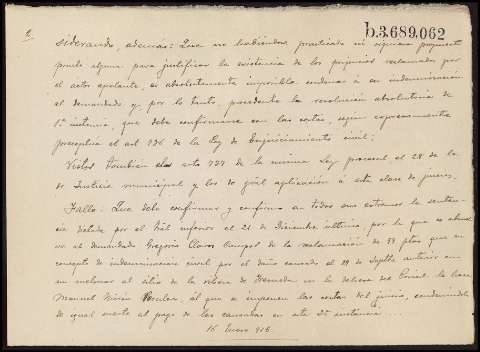 2
b.3.689.062
siderando, ademas: Que no habiendose practicado ni siquiera propuesto
prueba alguna para justificar la existencia de los perjuicios reclamados por
el actor apelante, es absolutamente imposible condenar á su indemnización
al demandado y, por lo tanto, procedente la resolución absolutoria de
1.ª instancia, que debe confirmarse con las costas, segun expresamente
preceptua el art 736 de la Ley de Enjuiciamiento civil;
Vistos tambien el arto 737 de la misma Ley procesal el 28 de la
de Justicia municipal y los de gral aplicación á esta clase de juicios.
Fallo: Que debo confirmar y confirmo en todos sus extremos la senten-
cia dictada por el Tral inferior el 21 de Diciembre ultimo, por la que se absuel
ve al demandado Gregorio Claros de la reclamación de 99 ptas que en
concepto de indemnización civil por el daño causado el de Septbre anterior en
un melonar al sitio de la en la dehesa del hace
Manuel al que se imponen las costas del juicio, condenándole
de igual suerte al pago de las causadas en esta 2ª instancia...
16 Enero 916.